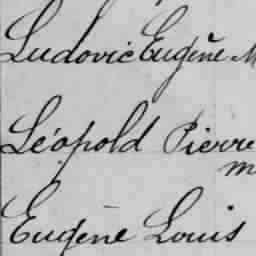 Ludovic Eugène M
Léopold Pierre
m
Eugène Louis